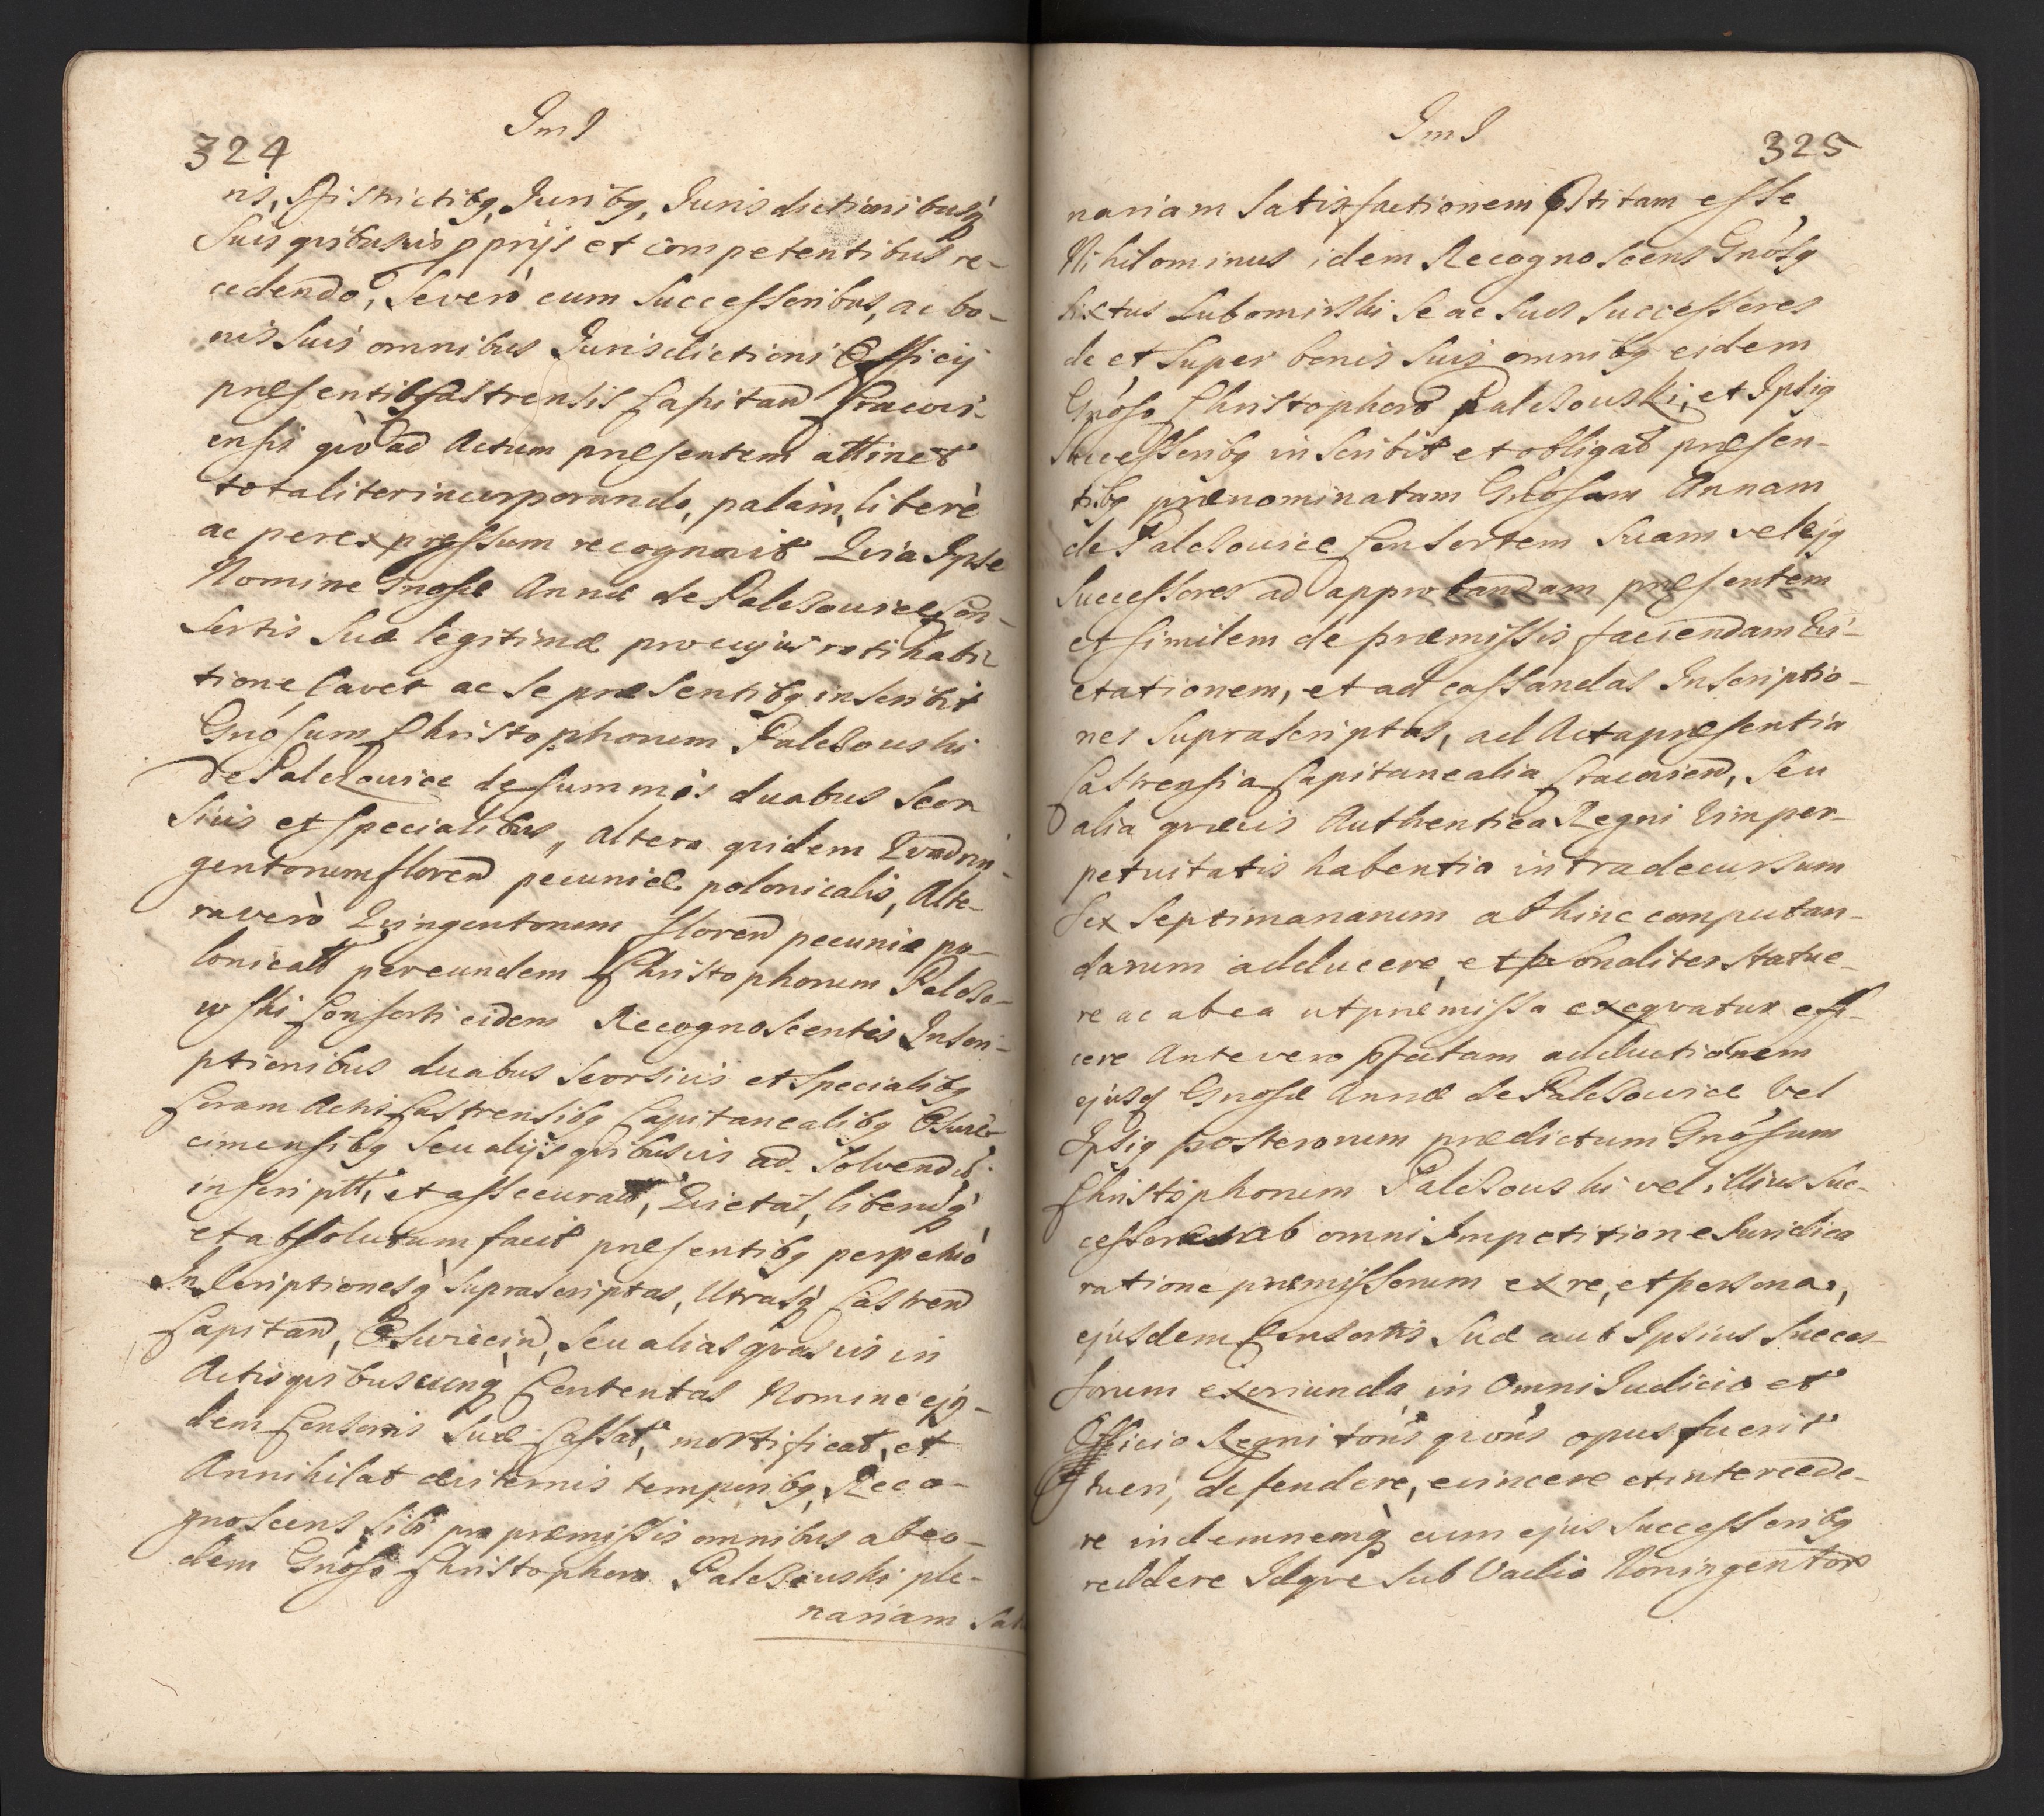 324
ImJ
nis, Districtibq, Juribq, Jurisdictionibusq
Suis quibusvis pprijs et competentibus re-
cedendo, Severò cum Successoribus, ac bo-
nis Suis omnibus Jurisdictioni Officij
præsentibq Castrensis Capitan Cracovi-
ensis qvò ad Actum præsentem attinet
totaliter incorporando, palàm, liberè
ac per expressum recognovit Qvia Ipse
Nomine Gnosæ Annæ de Palczowice Con-
sortis Suæ legitimæ pro cujus ratihabi-
tione Cavet ac Se præsentibq inscribit
Gnosum Christophorum Palczowski
de Palczowice de summis duabus Seor
sivis et specialibus, altera qvidem Qvadrin-
gentorum floren pecuniæ polonicalis, Alte-
ra verò Qvingentorum floren pecuniæ po-
lonicall per eundem Christophorum Palczo-
wski Consorti eidem Recognoscentis Inscri-
ptionibus duabus Seorsivis et Specialibq
Coram Actis Castrensibq Capitanealibq Oswie-
cimensibq Seu alijs qvibusvis ad Solvend
inscriptt, et assecuratt, Qvietat, liberuq
et absolutum facit præsentibq perpetuò
Inscriptionesq Suprascriptas, Utrasq Castren
Capitan, Oswiecin, Seu alias qvasvis in
Actis qvibuscunq Contentas Nomine ejq-
dem Consortis Suæ Cassat, mortificat, et
Annihilat æviternis temporibq, Reco-
gnoscens Sibi pro præmissis omnibus ab eo-
dem Gnoso Christophoro Palczowski ple-
nariam Sa
ImJ
325
nariam Satisfactionem pstitam esse
Nihilominus idem Recognoscens Gnosq
Sixtus Lubomirski Se ac Suos Successores
de et Super bonis Suis omnibq eidem
Gnoso Christophoro Palczowski, et Ipsiq
Successoribq inscribit et obligat præsen-
tibq prænominatam Gnosam Annam
de Palczowice Consortem Suam vel ejq
Successores ad approbandam præsentem
et similem de præmissis faciendam Qvi-
etationem, et ad cassandas Inscriptio-
nes Suprascriptas, ad Acta præsentia
Castrensia Capitanealia Cracovien, Seu
alia qvævis Authentica Regni Vim per-
petuitatis habentia intra decursum
Sex Septimanarum ab hinc computan-
darum adducere, et psonaliter statue-
re ac ab ea ut præmissa exeqvatur effi-
cere Ante vero pfatam adductionem
ejusq Gnosæ Annæ de Palczowice Vel
Ipsiq posterorum prædictum Gnosum
Christophorum Palczowski vel illius Suc-
cessores ab omni Impetitione Juridica
ratione præmissorum ex re, et persona,
ejusdem Consortis Suæ aut Ipsius Succes-
sorum exoriunda in Omni Judicio et
Officio Regni tons qvons opus fuerit
tueri, defendere, evincere et intercede-
re indemnemq cum ejus Successoribq
reddere Idqve Sub Vadio Noningentor